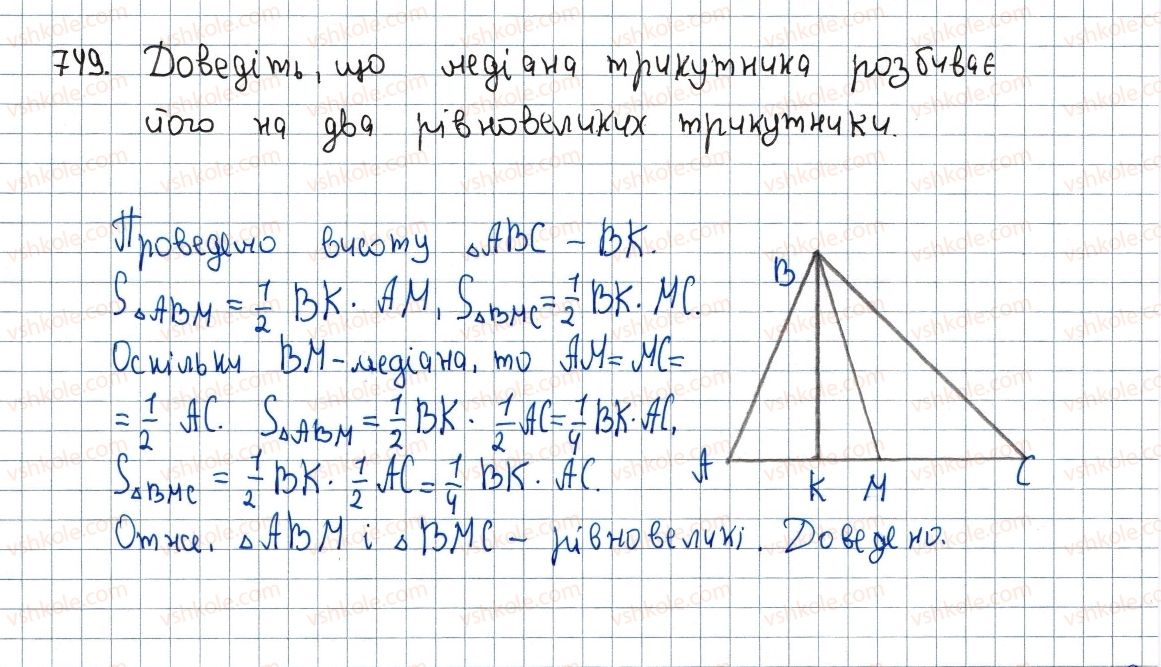 749. Доведіть, що медіана трикутника розбиває
його на два рівновеликих трикутники.
Проведемо висоту △ABC – BK.
S△ABM = 1/2 BK · AM, S△BMC = 1/2 BK · MC.
Оскільки BM – медіана, то AM = MC =
= 1/2 AC. S△ABM = 1/2 BK · 1/2 AC = 1/4 BK · AC,
S△BMC = 1/2 BK · 1/2 AC = 1/4 BK · AC.
Отже, △ABM і △BMC – рівновеликі. Доведено.
B
A
K
M
C
vshkole.com